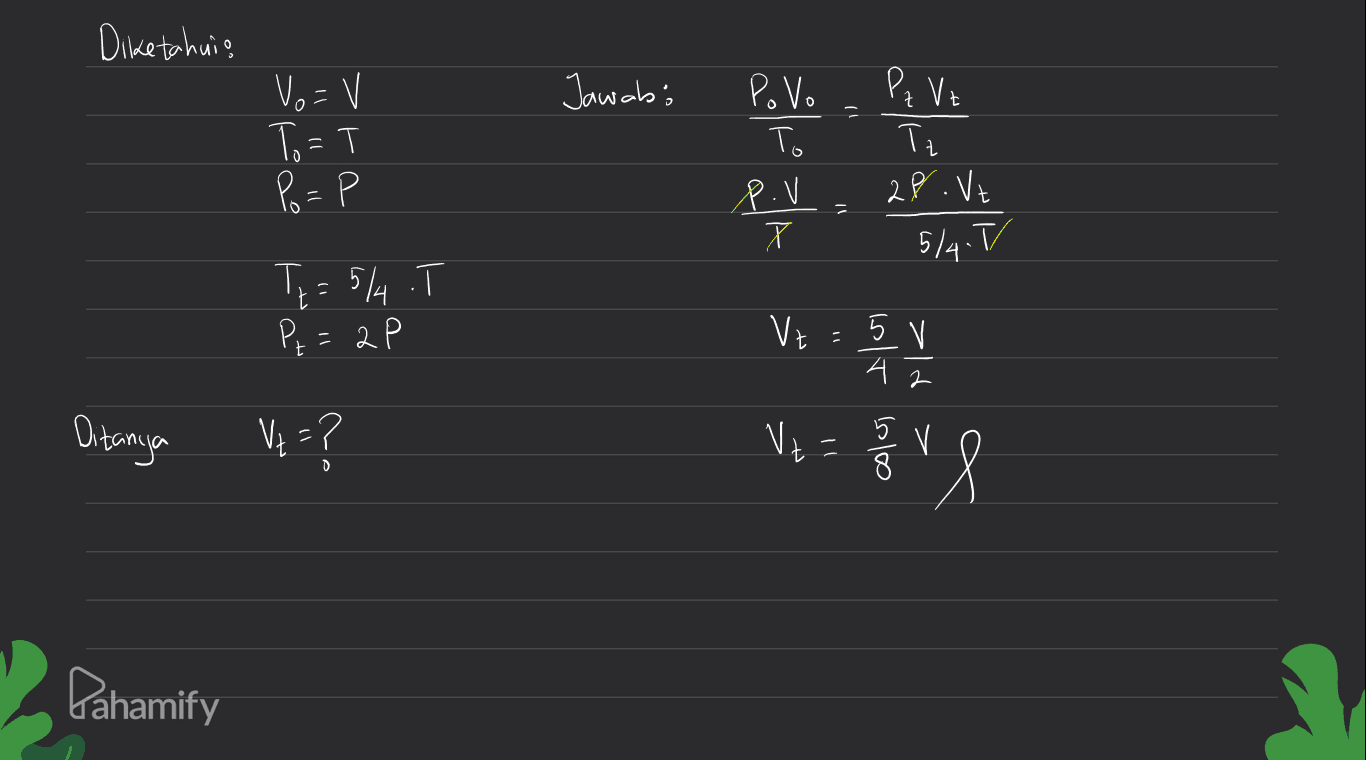 Diketahui :
V₀ = V
T₀ = T
P₀ = P
Tt = 5/4 . T
Pt = 2P
Ditanya Vt = ?
Jawab :
P₀ V₀ / T₀ = Pt Vt / Tt
P . V / T = 2P . Vt / 5/4 . T
Vt = 5/4 V/2
Vt = 5/8 V
Pahamify